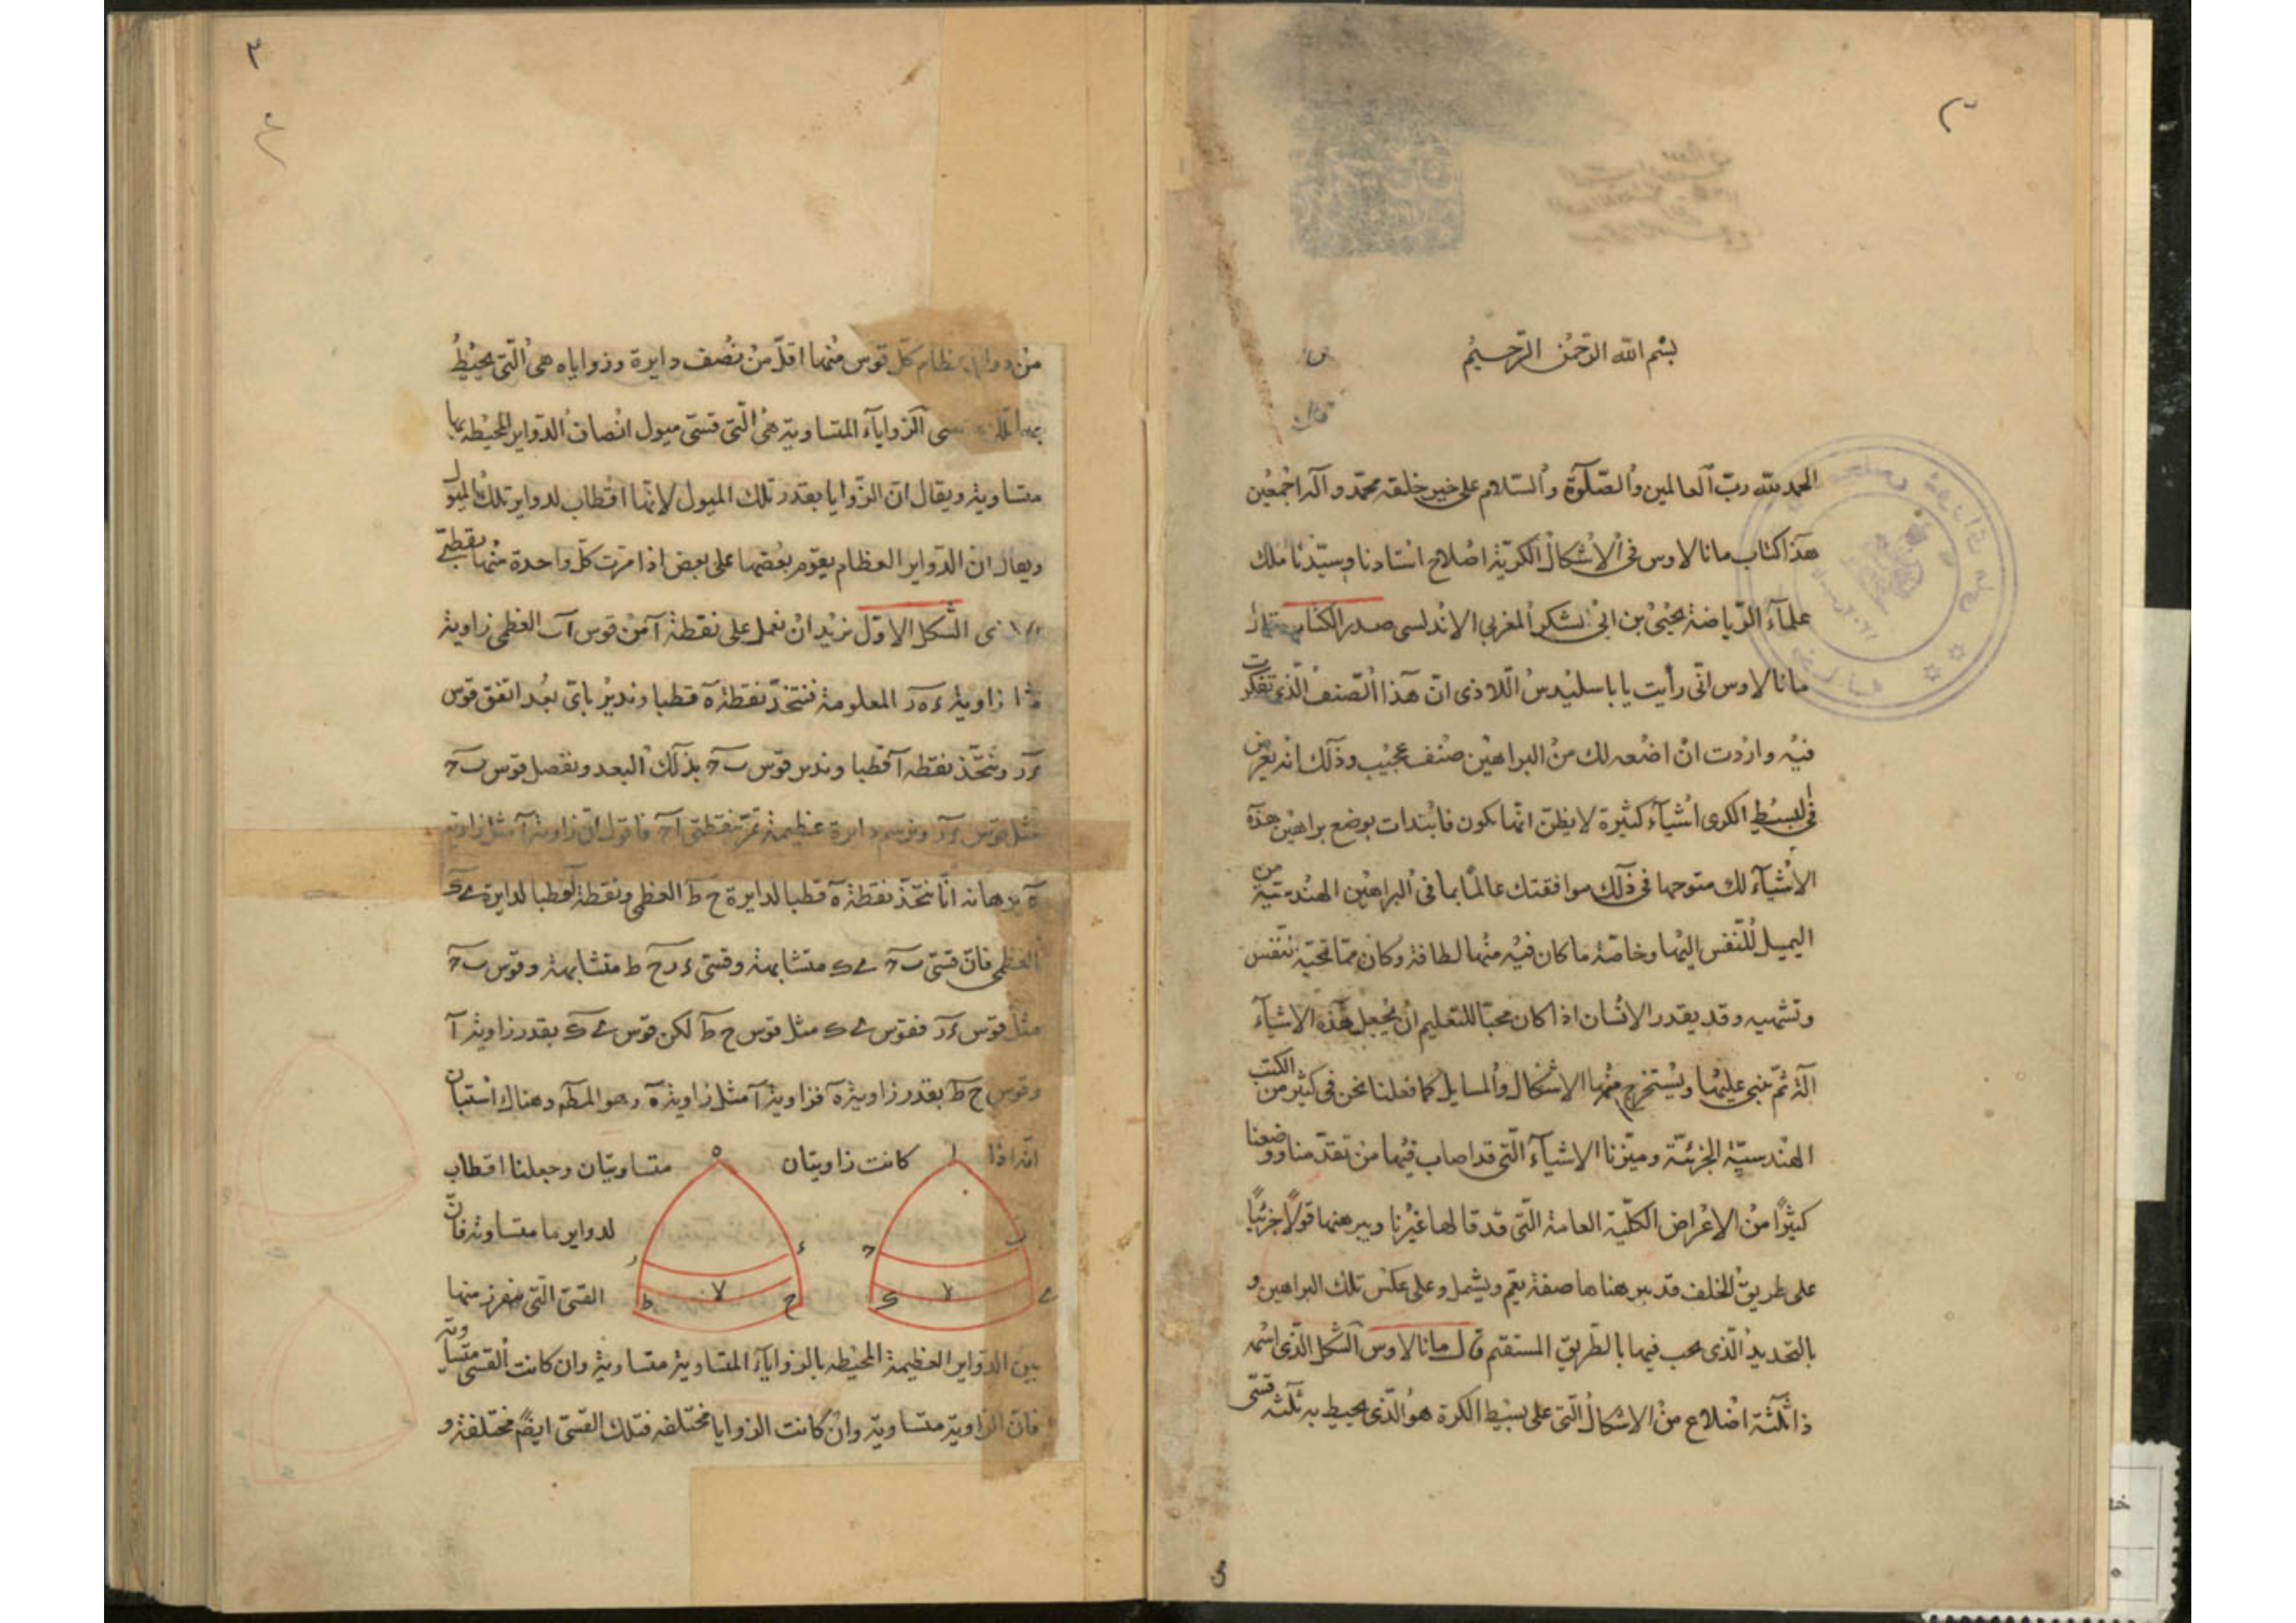 بسم الله الرحمن الرحيم
الحمد لله رب العالمين والصلوة والسلام على خير خلقه محمد وآله اجمعين
هذا كتاب مانالاوس فى الاشكال الكرية اصلاح استادنا وسيدنا ملك
علمآء الرياضة يحيى بن ابى الشكر المغربي الاندلسى صدر الكتاب قال
مانالاوس انى رأيت يا باسليدس اللاذى ان هذا الصنف الذى تفكرت
فيه واردت ان اضعه لك من البراهين صنف عجيب وذلك انه يعرض
فى البسيط الكرى اشيآء كثيرة لا يظن انها تكون فابتدات بوضع براهين هذه
الاشيآء لك متوجها فى ذلك موافقتك عالما بما فى البراهين الهندسية من
الميل للنفس اليها وخاصة ما كان فيه منها لطافة وكان مما تحبه النفس
وتشتهيه وقد يقدر الانسان اذا كان محبا للتعليم ان يجعل هذه الاشيآء
آلة ثم يبنى عليها ويستخرج منها الاشكال والمسايل كما فعلنا نحن فى كثير من الكتب
الهندسية الجزئية وميزنا الاشيآء التى قد اصاب فيها من تقدمنا ووضعنا
كثيرا من الاعراض الكلية العامة التى قد قالها غيرنا وبرهنها قولا جزئيا
على طريق الخلف قد برهناها صفة يعم ويشمل وعلى عكس تلك البراهين و
بالتحديد الذى يجب فيها بالطريق المستقيم قال مانالاوس الشكل الذى اسمه
ذا ثلثة اضلاع من الاشكال التى على بسيط الكرة هو الذى يحيط به ثلثة قسى
٣
من دواير عظام كل قوس منها اقل من نصف دايرة وزواياه هى التى يحيط
بها تلك القسى الزوايآء المتساوية هى التى قسى ميول انصاف الدواير المحيطه بها
متساوية ويقال ان الزوايا بقدر تلك الميول لانها اقطاب لدواير تلك الميول
ويقال ان الدواير العظام يقوم بعضها على بعض اذا مرت كل واحدة منها بقطبى
الاخرى الشكل الاول نريد ان نعمل على نقطة آ من قوس آب العظمى زاوية
مثل زاوية ءهر المعلومة فنتخذ نقطة ه قطبا وندير باى بعد اتفق قوس
ءر ونتخذ نقطه آ قطبا وندير قوس بح بذلك البعد ونفصل قوس بح
مثل قوس ءر ونرسم دايرة عظيمة تمر بنقطتى اح فاقول ان زاوية آ مثل زاوية
ه برهانه انا نتخذ نقطة ه قطبا لدايرة ح ط العظمى ونقطة آ قطبا لدايرة ى ك
العظمى فان قسى بح ى ك متشابهة وقسى ءر ح ط متشابهة وقوس بح
مثل قوس ءر فقوس ى ك مثل قوس ح ط لكن قوس ى ك بقدر زاوية آ
وقوس ح ط بقدر زاوية ه فزاوية آ مثل زاوية ه وهو المط وهناك استبان
انه اذا كانت زاويتان متساويتان وجعلنا اقطاب
لدواير ما متساوية فان
القسى التى تفرز منها
بين الدواير العظيمة المحيطه بالزوايآء المتساوية متساوية وان كانت القسى متساوية
فان الزاوية متساوية وان كانت الزوايا مختلفه فتلك القسى ايضً مختلفة و